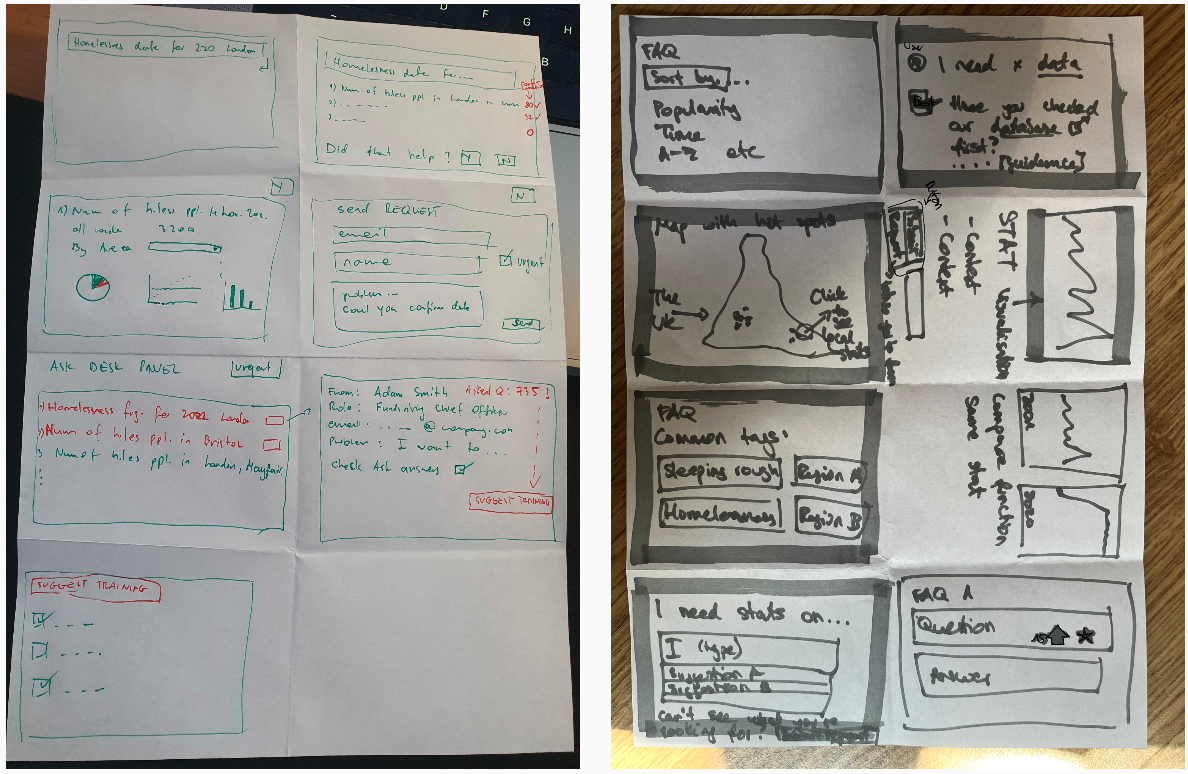 D F G H
B
Homelessness data for 220 London
Homelessness data for...
1) Num of h.less ppl. in London in
80 ✓
2) . - - - -
52 ✓
3 - - - -
0
Did that help? Y N
Y
1) Num of h.less ppl. in Lon.
3200
By Area
N
send REQUEST
email
name
urgent
problem...
coul you confirm data
send
ASK DESK PANEL urgent
1) Homelessness fig. for 2022 London
2) Num of h.less ppl. in Bristol
3) Num of h.less ppl. in London, Mayfair
From: Adam Smith Asked Q: 735!
Role: Fundraising Chief Officer
email: . . - @ company.com
Problem: I want to...
check Ask answers
SUGGEST TRAINING
SUGGEST TRAINING
FAQ
Sort by...
Popularity
Time
A-Z etc
User
I need x data
Have you checked
our database
first?
.... [Guidance]
Map with hot spots
The
UK
Click
local
stats
STAT Visualisation
- Context
- Context
FAQ
Common tags:
Sleeping rough Region A
Homelessness Region B
Compare function
Same stat
2021
2020
I need stats on...
I (type)
Suggestion A
Suggestion B
can't see what you're
looking for?
FAQ A
Question
15
Answer